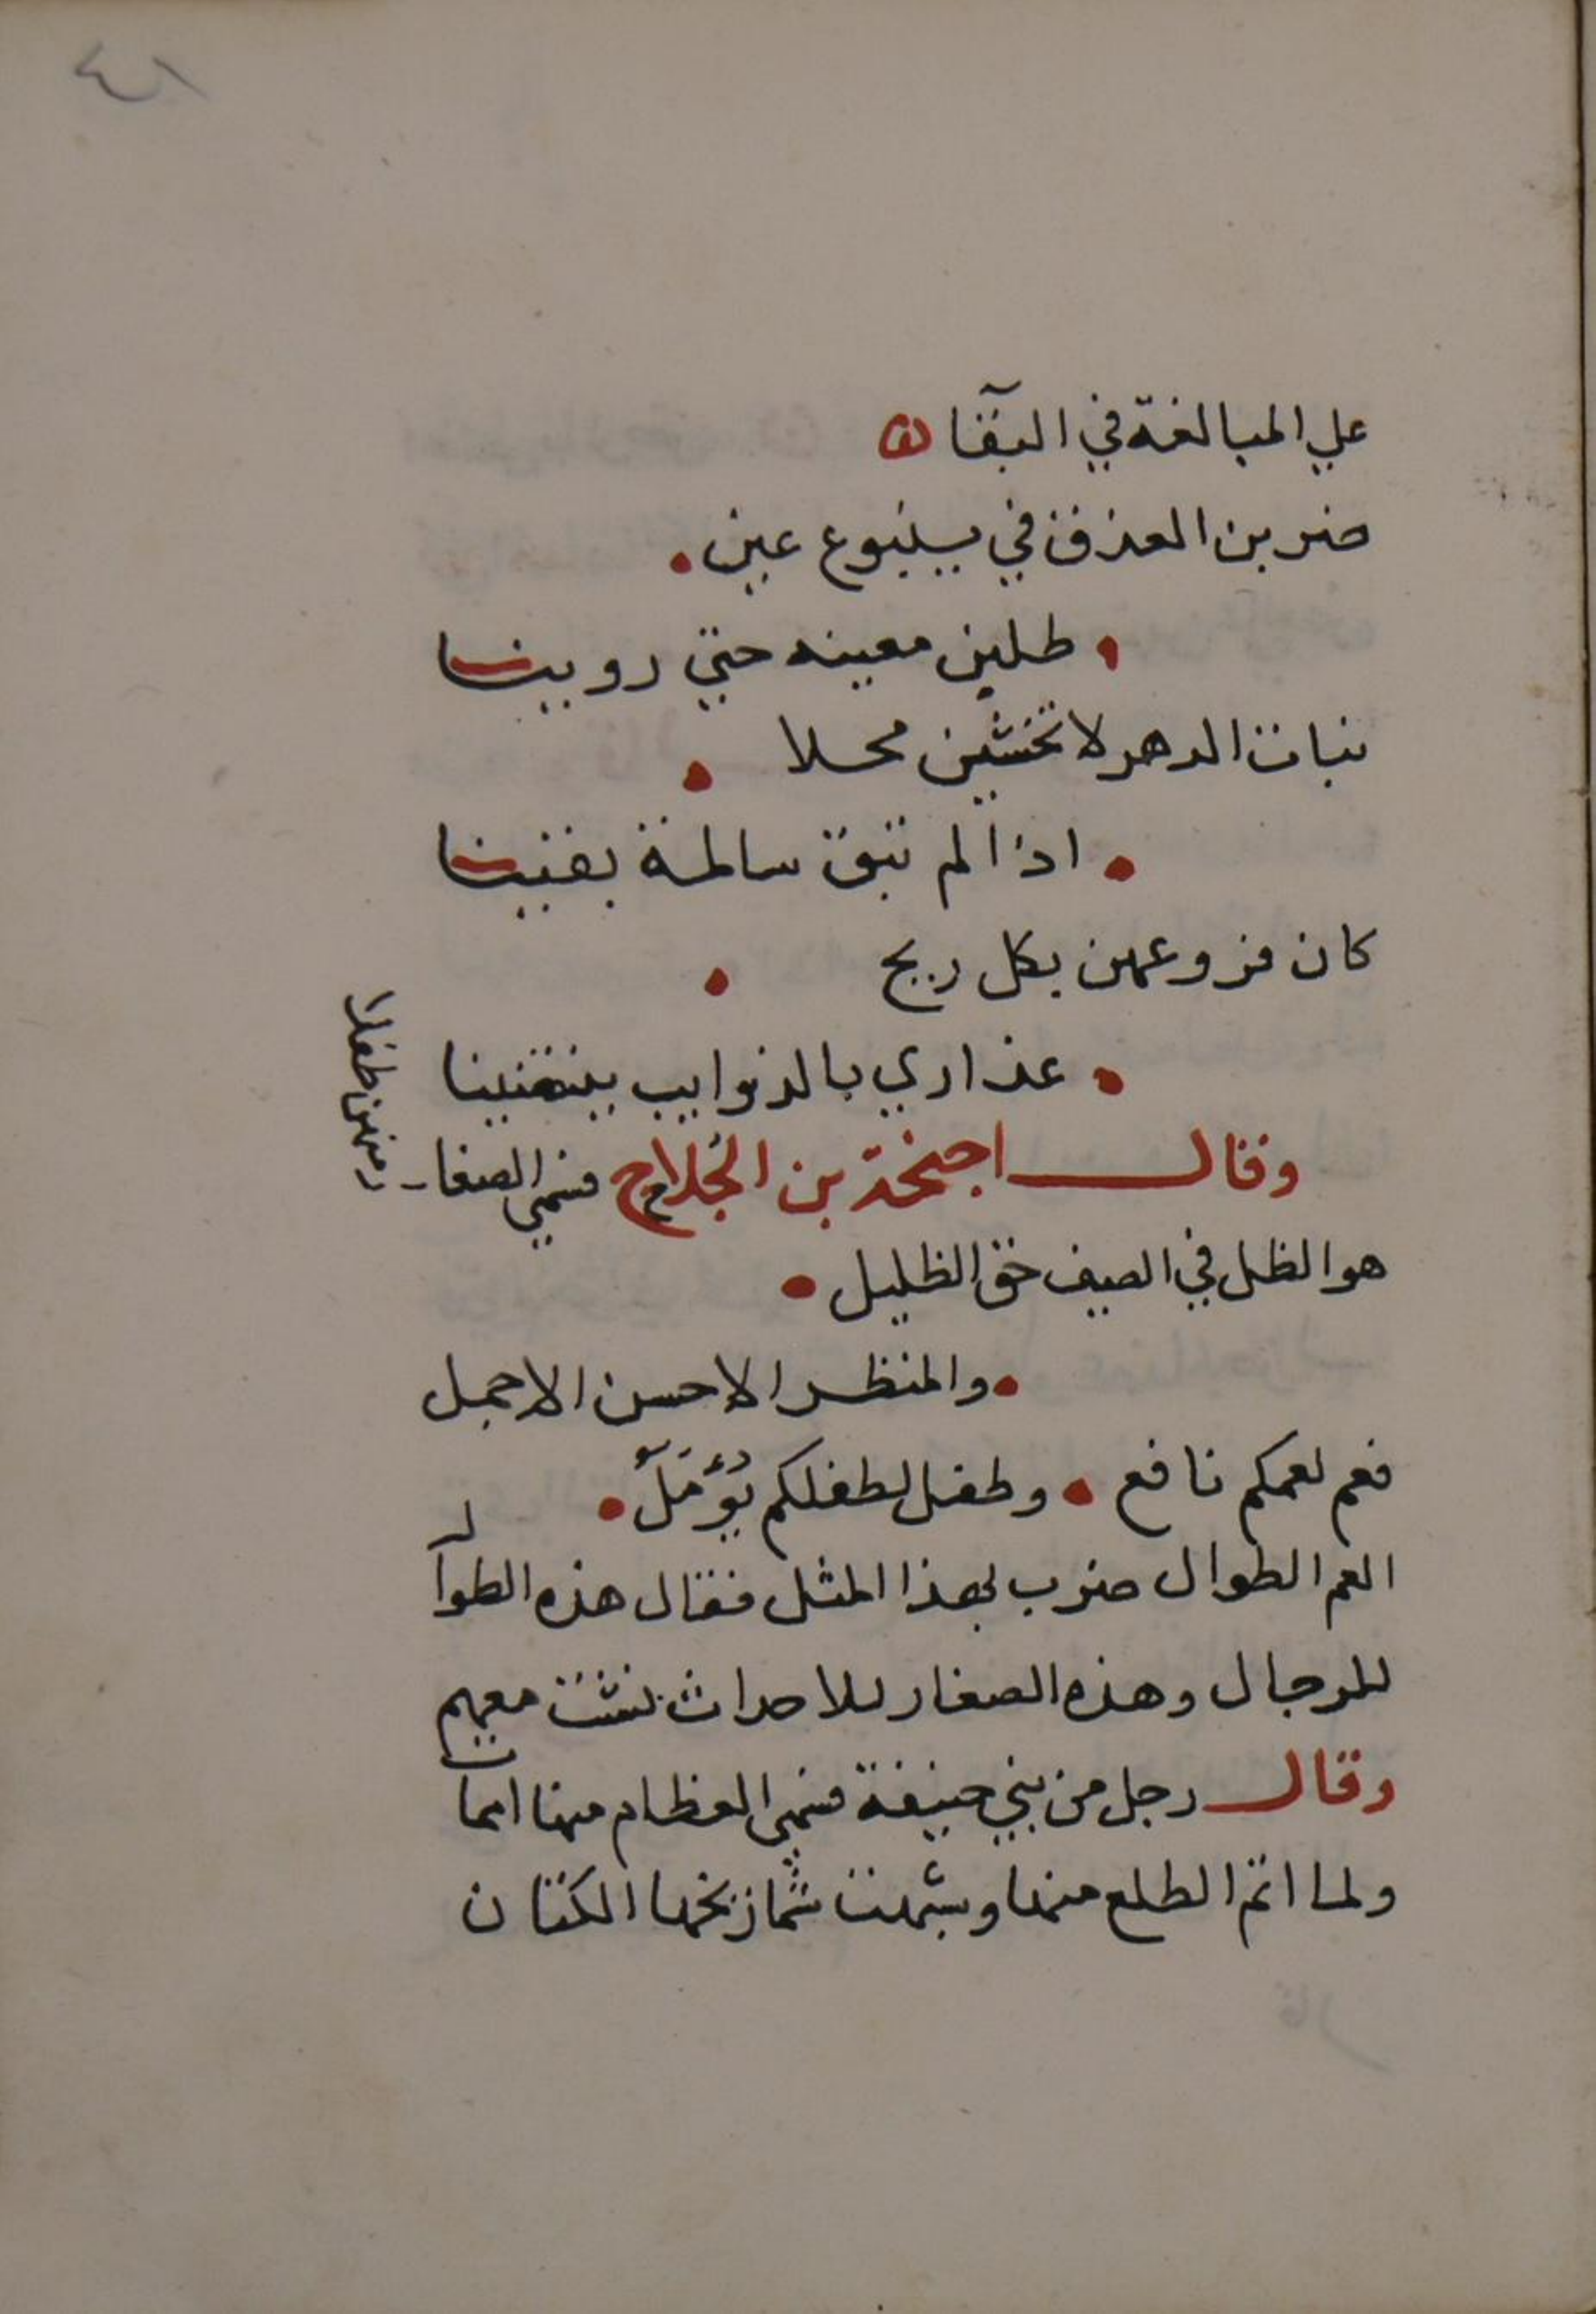 علي المبالغة في البقآ
ضربن العذق في ينبوع عين
طلبن معينه حتي روينا
نبات الدهر لا تخشين محلا
اذا لم تبق سالمة بقينا
كان فروعهن بكل ريح
عذاري بالذوايب ينتضينا
وقال اجيحة بن الجُلاح فسمي الصغار
منهن طفلا
هو الظل في الصيف حق الظليل
والمنظر الاحسن الاجمل
فعم لعمكم نافع وطفل لطفلكم يُؤمَلُ
العم الطوال ضرب بهذا المثل فقال هذه الطوال
للرجال وهذه الصغار للاحداث نشت معهم
وقال رجل من بني حنيفة فسمي العظام منها امها
ولما اتم الطلع منها وشمازيخها الكتان